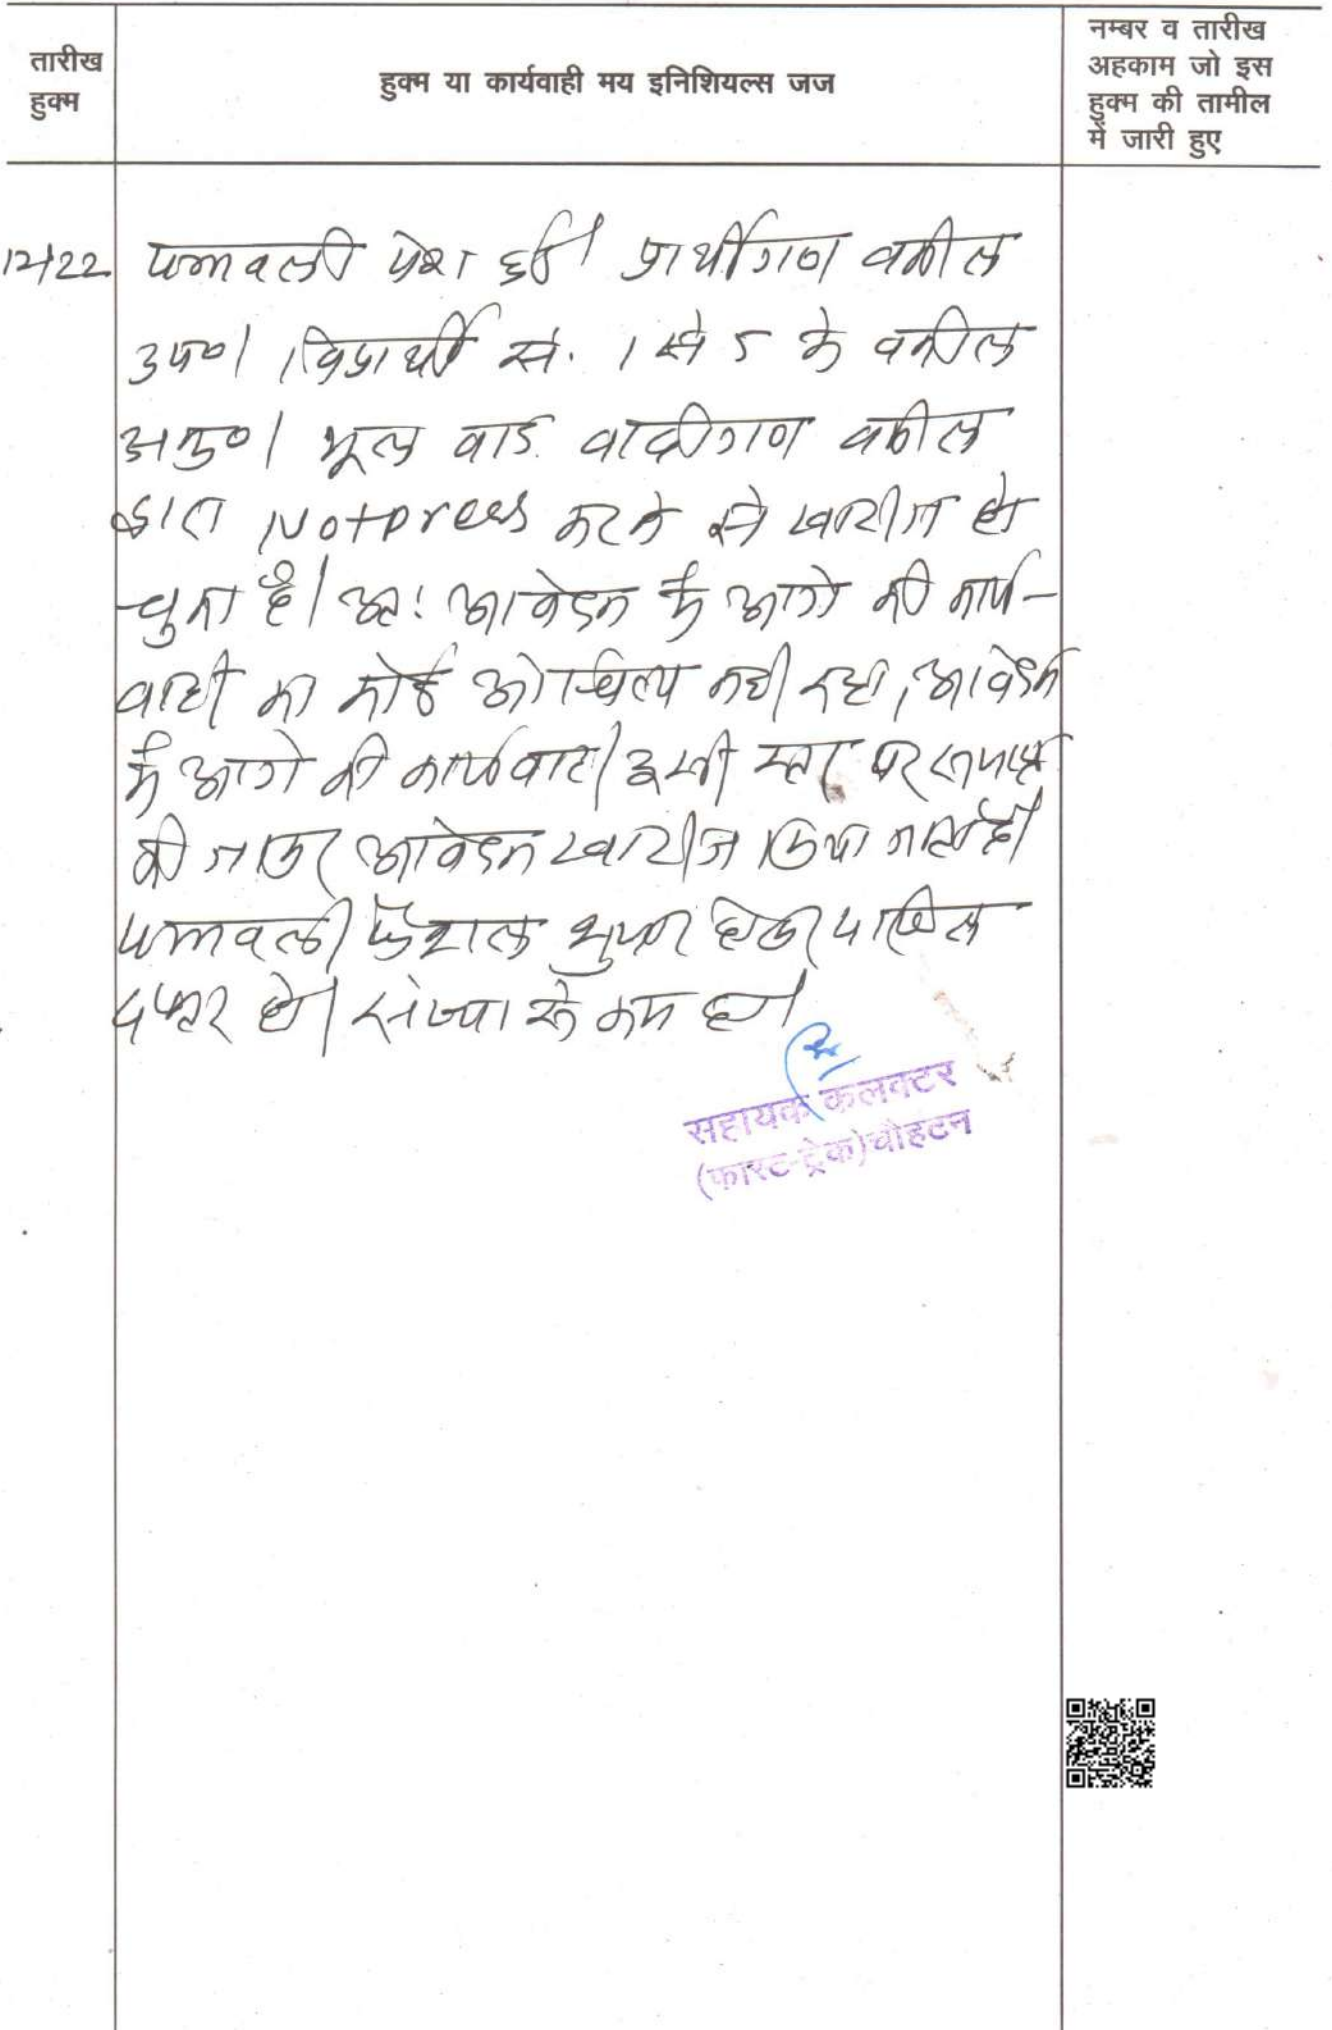 तारीख
हुक्म
हुक्म या कार्यवाही मय इनिशियल्स जज
नम्बर व तारीख
अहकाम जो इस
हुक्म की तामील
में जारी हुए
पत्रावली पेश हुई। प्रार्थीगण वकील
उप०। विप्रार्थी सं. 1 से 5 के वकील
अनु०। मूल वाद वादीगण वकील
द्वारा Notpress करने से खारीज हो
चुका है। अतः आवेदन में आगे की कार्य-
वाही का कोई औचित्य नही रहा, आवेदन
में आगे की कार्यवाही इसी स्तर पर समाप्त
की जाकर आवेदन खारीज किया जाता है।
पत्रावली फैशल शुमार होकर दाखिल
दफ्तर हो। संख्या से कम हो।
सहायक कलक्टर
(फास्ट-ट्रेक) चौहटन